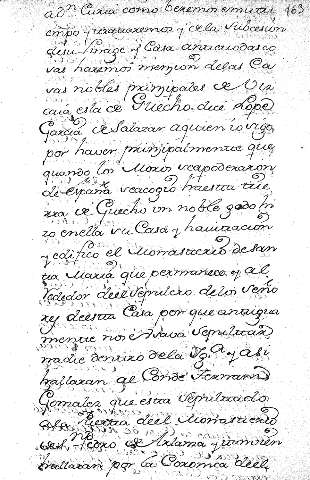 al n. Curia como beremos en su ti 163
empo y trataremos y de la subcesion
de su linage y Casa antes de las co
sas haremos mencion de las Ca
sas nobles principales de Viz
caia, esta de Guecho, dice Lope
Garcia de Salazar a quien io sigo
por haver principalmente que
quando los Moros se apoderaron
de españa se acogio ha esta tie
rra de Guecho un noble godo hi
zo en ella su Casa y havitacion
y edifico el Monasterio de San
ta Maria que permanece y al
rededor de el Sepulcro de los Seño
res de esta Casa por que antigua
mente no se usava sepultar
nadie dentro de la Yg.a y asi
hallaran al Conde Fernan
Gonzalez que esta sepultado
a la Puerta de el Monasterio
de Sn. Pedro de Arlanza y tambien
hallaran por la Coronica de el